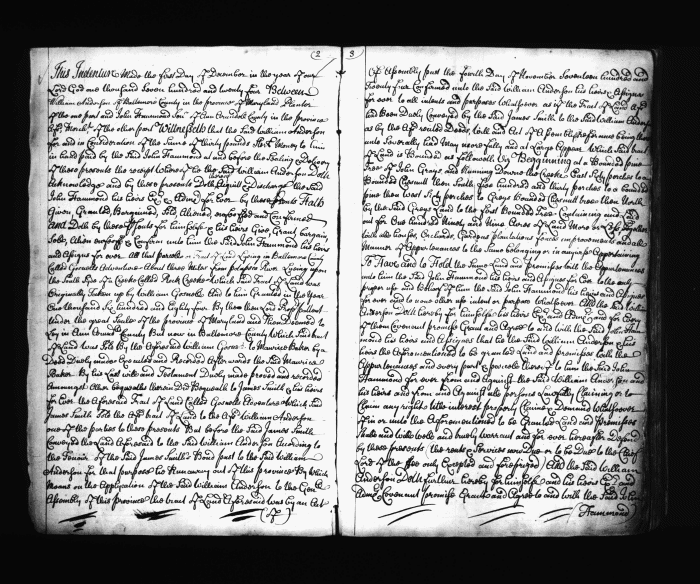 2
This Indenture Made the first Day of December in the year of our
Lord God one thousand Seven hundred and twenty five Between
William Anderson of Baltemore County in the province of Maryland Planter
of the one part and John Hammond Son of Ann Arundell County in the province
of the other part Witnesseth that the Said William Anderson
for and in Consideration of the Sume of thirty pounds Money to him
in hand paid by the Said John Hammond at and before the Sealing & Delivery
of these presents the receipt Whereof the Said William Anderson Doth
acknowledge and by these presents Doth Acquitt & Discharge the Said
John Hammond his heirs Ex & Adm for Ever by these presents Hath
Given Granted Bargained Sold, Aliened enfeoffed and Confirmed
And Doth by these presents for himselfe & his heirs Give, Grant bargain
Sole, Alien enfeoff & Confirm unto him the Said John Hammond his heirs
and Assigns for ever All that parcele or Tract of Land Lying in Baltemore County
Called Gorsuchs Adventure About three Miles from patapsco River Lying upon
the South Side of a Creeke Called Rock Creeke Which Said Tract of Land was
Originally Taken up by William and to him Granted in the Year
One thousand Six hundred and Eighty four By the then Lord Proprietor
Under the great Seale of the province of Maryland and then Deemed to
Ly in Ann Arundell County But now in Baltemore County Which Said tract
of Land was Sold By the Aforesaid William to Maurice Baker by a
Deed Duely under Executed and Recorded Afterwards the Said Maurice
Baker By his Last Will and Testament Duely made proved and recorded
Amongst Other Bequeaths therein Did Bequeath to James Smith & his heirs
for Ever the Aforesaid Tract of Land Called Adventure Which Said
James Smith Sold the Afs tract of Land to the Afs William Anderson
one of the parties to these presents But before the Said James Smith
Conveyed the Land Aforesaid to the Said William Anderson According to
the Tenour of the Said James Smith's Bond past to the Said William
Anderson for that purpose he Runaway out of this province By Which
Means on the Application of the Said William Anderson to the Genll
Assembly of this province the tract of Land Aforesaid was by an Act
(of
3
Of Assembly past the fourth Day of November Seventeen hundred and
Twenty five Confirmed unto the Said William Anderson his heirs & Assigns
for ever to all intents and purposes Whatsoever as if the Tract of Land Afs
had Been Duely Conveyed by the Said James Smith to the Said William Anderson
as by the Afs recited Deeds, Wills and Act of Assembly Aforesaid relation being thereunto
unto Severally had May more fully and at Large Appear Which Said tract
of Land is Bounded as followeth Viz Beginning at a Bounded pine
Tree of John Grays and Running Down the Creeke East Sixty perches to a
Bounded Chesnutt then South five hundred and thirty perches to a bounded
pine then West Sixty perches to Grays Bounded Chesnutt tree then North
by the Said Grays Land to the first Bounded Tree Containing and Laid
out for One hundred Ninety and Nine Acres of Land More or Less Together
with all houses, Orchards, Gardens plantations fences improvements and all
Manner of Appurtenances to the Same belonging or in any wise Appertaining
To Have and to Hold the Same Land and premisses with the Appurtenances
unto him the Said John Hammond his heirs and Assigns for Ever to the only
proper use and Behoof of him the Said John Hammond his heirs and Assigns
for ever and to none other use intent or purpose Whatsoever And the Said William
Anderson Doth hereby for himselfe his heirs Ex and Adm and for Every
of them Covenant promise Grant and Agree to and with the Said John Hammond
mond his heirs and Assignes that he the Said William Anderson & his
heirs the Aforementioned to be granted Land and premisses with the
Appurtenances and every part & parcele thereof to him the Said John
Hammond for ever from and against the Said William Anderson and
his heirs and from and against all persons Lawfully Claiming or to
Claim any right title interest property Claime & Demand Whatsoever
of in or unto the Aforementioned to be Granted Land and premisses
Shall and Will well and truely Warrant and for ever hereafter Defend
by these presents (the rents & Services now Due or to be Due to the Cheif
Lord of the fee only Excepted and foreprized) And the Said William
Anderson Doth further hereby for himselfe and his heirs Ex and
Adm Covenant promise Grant and Agree to and with the Said John
Hammond